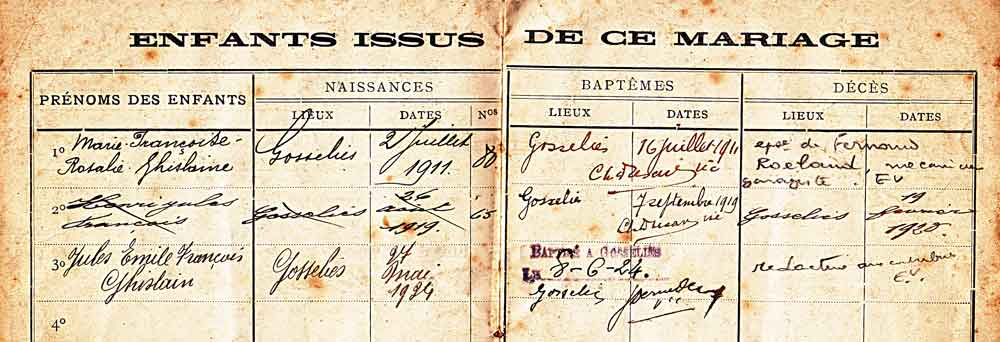 ENFANTS ISSUS DE CE MARIAGE
PRÉNOMS DES ENFANTS
NAISSANCES
LIEUX
DATES
Nos
BAPTÊMES
LIEUX
DATES
DÉCÈS
LIEUX
DATES
1o Marie-Françoise-
Rosalie-Ghislaine
Gosselies
2 Juillet
1911.
Gosselies
16 juillet 1911
epse de Fernand
Roeland, mecanicien
garagiste. EV
2o Henri Jules
François
Gosselies
26
août
1919.
65
Gosselies
7 septembre 1919
Gosselies
19
janvier
1920.
3o Jules Emile François
Ghislain
Gosselies
27
Mai
1924
BAPTISÉ A GOSSELIES
Le 8-6-24.
Gosselies
EV.
4o